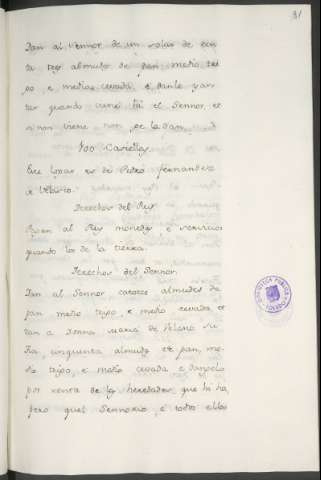 81
Dan al Sennor de un solar de ren
ta tres almudes de pan, medio tri
go, e medio cevada, e danle yan
tar quando viene hi el Sennor, et
si non viene non ge la dan.
100 Carielles
Este logar es de Pedro Fernandez
de Velasco.
Derechos del Rey
Pagan al Rey monedas e servicios
quando los de la tierra.
Derechos del Sennor
Dan al Sennor catorce almudes de
pan medio trigo, e medio cevada, et
dan a Donna Maria de Solano su
Tia, cinquenta almudes de pan, me
dio trigo, e medio cevada e danselo
por renta de las heredades que hi ha,
pero quel Sennorio, e todo ello
BIBLIOTECA PUBLICA
TOLEDO